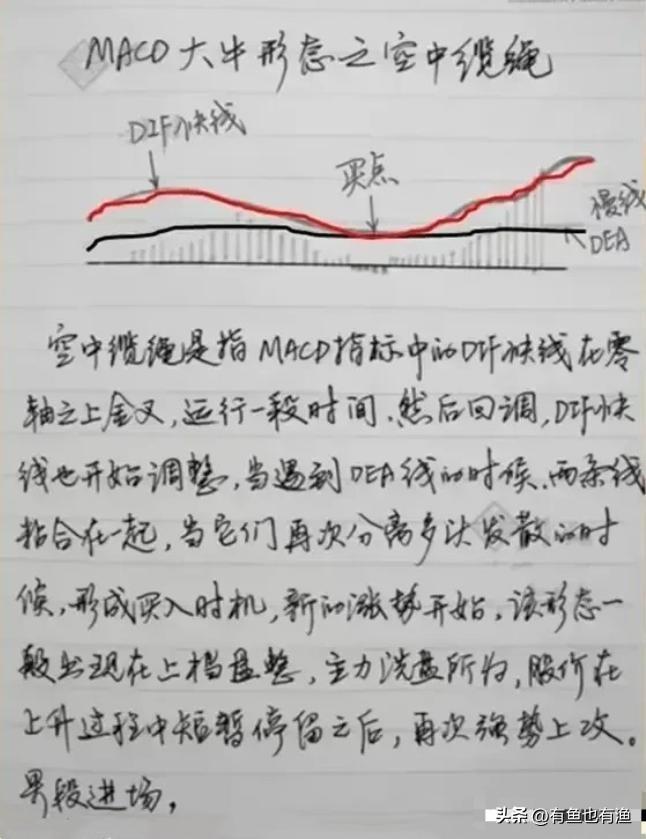 MACD大牛形态之空中缆绳
DIF快线
买点
慢线
DEA
空中缆绳是指MACD指标中的DIF快线在零
轴之上金叉,运行一段时间、然后回调,DIF快
线也开始调整,当遇到DEA线的时候、两条线
粘合在一起,当它们再次分离多头发散的时
候,形成买入时机,新的涨势开始。该形态一
般出现在上档盘整,主力洗盘所为,股价在
上升过程中短暂停留之后,再次强势上攻。
果段进场,
头条 @有鱼也有渔